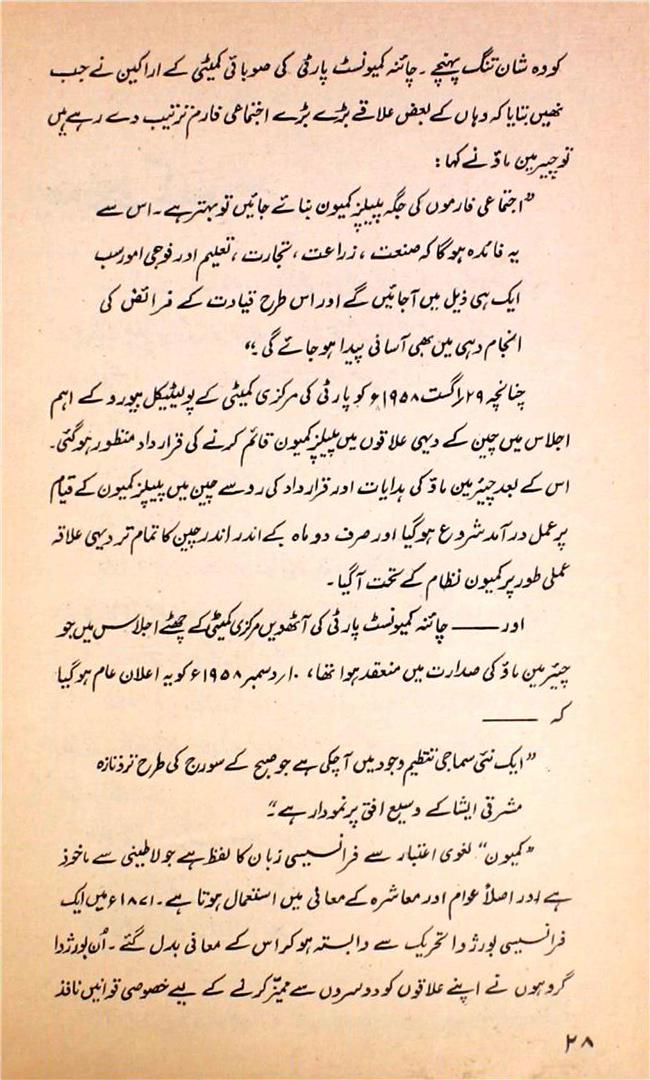 کو وہ شان تنگ پہنچے ۔ چائنہ کمیونسٹ پارٹی کی صوبائی کمیٹی کے اراکین نے جب
نھیں بتایا کہ وہاں کے بعض علاقے بڑے بڑے اجتماعی فارم ترتیب دے رہے ہیں
تو چیرمین ماؤ نے کہا :
”اجتماعی فارموں کی جگہ پیپلز کمیون بنائے جائیں تو بہتر ہے ۔ اس سے
یہ فائدہ ہوگا کہ صنعت ، زراعت ، تجارت ، تعلیم اور فوجی امور سب
ایک ہی ذیل میں آجائیں گے اور اس طرح قیادت کے فرائض کی
انجام دہی میں بھی آسانی پیدا ہو جائے گی ۔“
چنانچہ ۲۹؍اگست ۱۹۵۸ء کو پارٹی کی مرکزی کمیٹی کے پولیٹیکل بیورو کے اہم
اجلاس میں چین کے دیہی علاقوں میں پیپلز کمیون قائم کرنے کی قرار داد منظور ہوگئی ۔
اس کے بعد چیئرمین ماؤ کی ہدایات اور قرار داد کی رو سے چین میں پیپلز کمیون کے قیام
پر عمل درآمد شروع ہو گیا اور صرف دو ماہ کے اندر اندر چین کا تمام تر دیہی علاقہ
عملی طور پر کمیون نظام کے تحت آ گیا ۔
اور ــــــ چائنہ کمیونسٹ پارٹی کی آٹھویں مرکزی کمیٹی کے چھٹے اجلاس میں جو
چیئرمین ماؤ کی صدارت میں منعقد ہوا تھا ، ۱۰؍دسمبر ۱۹۵۸ء کو یہ اعلان عام ہو گیا
کہ ــــــ
”ایک نئی سماجی تنظیم وجود میں آچکی ہے جو صبح کے سورج کی طرح تر و تازہ
مشرقی ایشا کے وسیع افق پر نمودار ہے ۔“
”کمیون“ لغوی اعتبار سے فرانسیسی زبان کا لفظ ہے جو لاطینی سے ماخوذ
ہے اور اصلاً عوام اور معاشرہ کے معانی میں استعمال ہوتا ہے ۔ ۱۸۷۱ء میں ایک
فرانسیسی بورژوا تحریک سے وابستہ ہو کر اس کے معانی بدل گئے ۔ اُن بورژوا
گروہوں نے اپنے علاقوں کو دوسروں سے ممیّز کرنے کے لیے خصوصی قوانین نافذ
۲۸